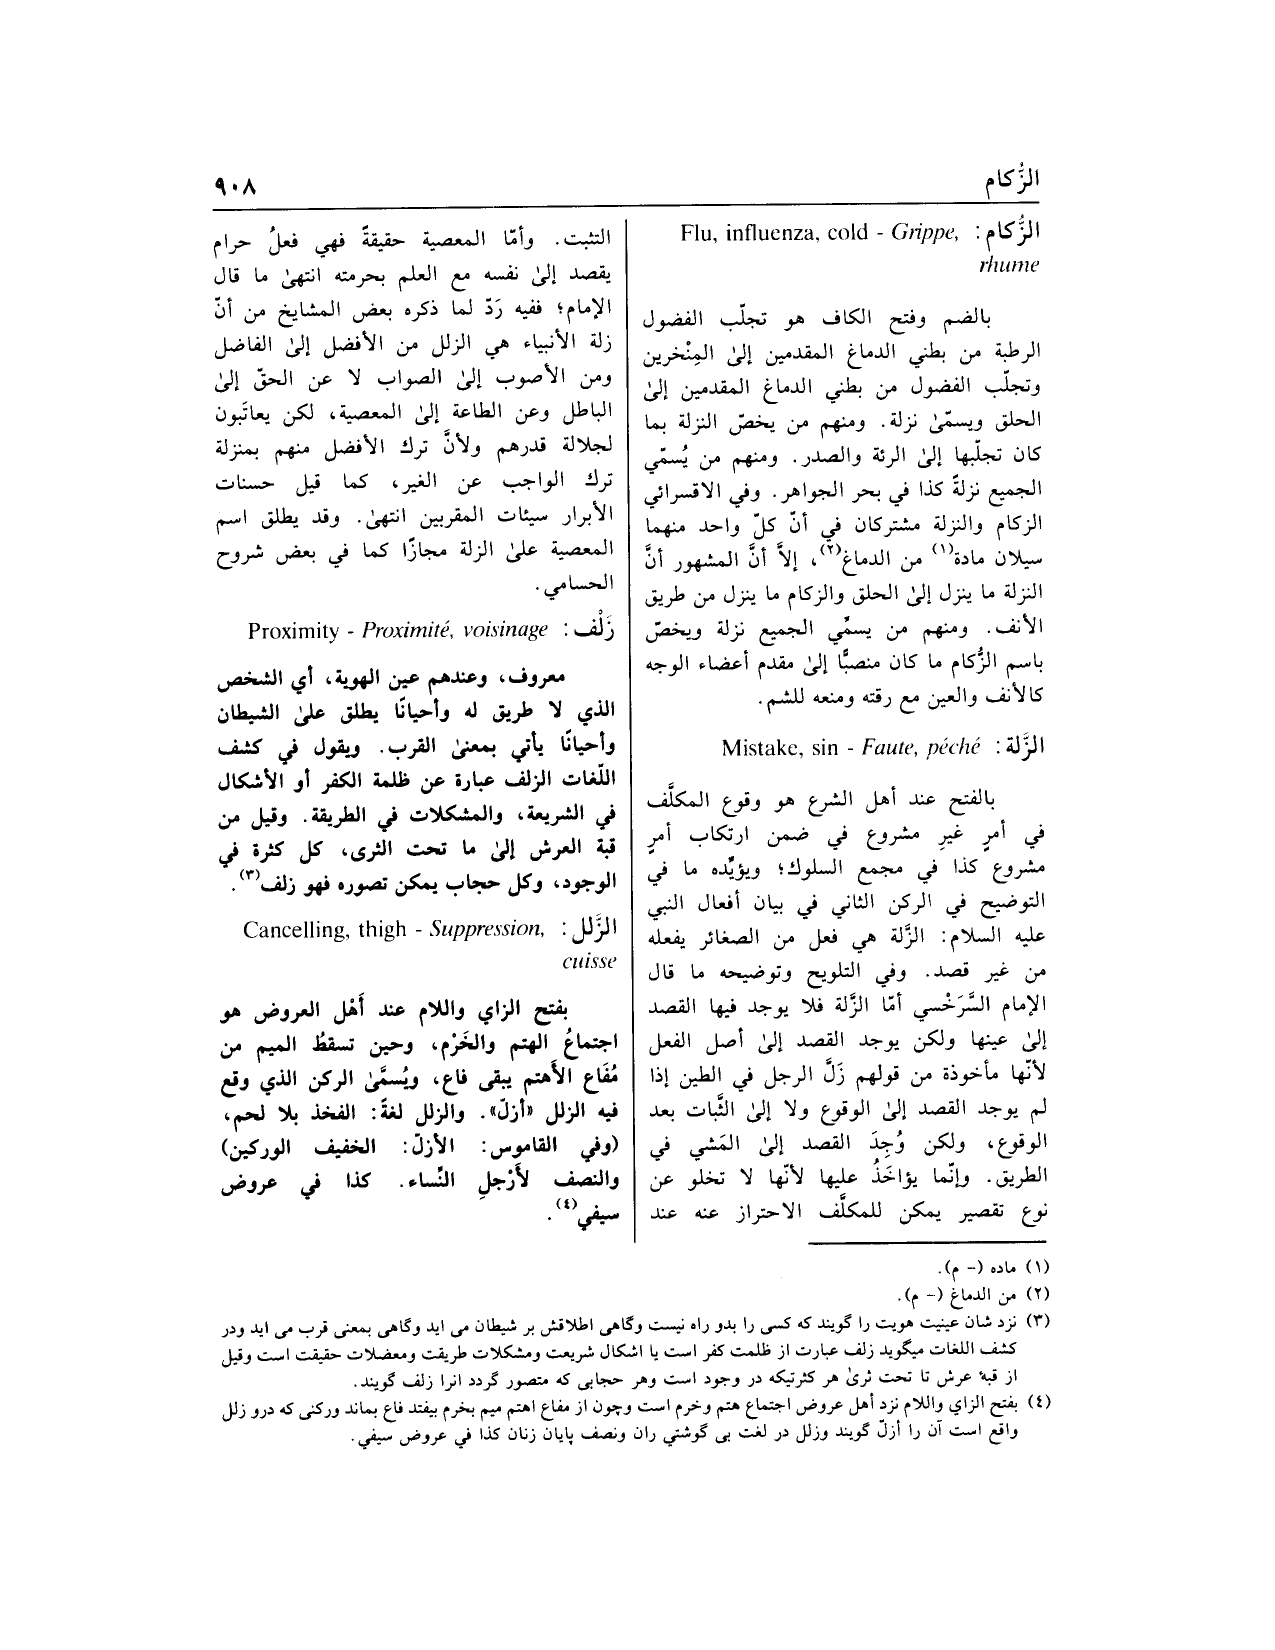 الزُّكام
٩٠٨
الزُّكام: Flu, influenza, cold - Grippe,
rhume
بالضم وفتح الكاف هو تجلّب الفضول
الرطبة من بطني الدماغ المقدمين إلىٰ المِنْخرين
وتجلّب الفضول من بطني الدماغ المقدمين إلىٰ
الحلق ويسمّىٰ نزلة. ومنهم من يخصّ النزلة بما
كان تجلّبها إلىٰ الرئة والصدر. ومنهم من يُسمّي
الجميع نزلةً كذا في بحر الجواهر. وفي الاقسرائي
الزكام والنزلة مشتركان في أنّ كلّ واحد منهما
سيلان مادة(١) من الدماغ(٢)، إلاَّ أنَّ المشهور أنَّ
النزلة ما ينزل إلىٰ الحلق والزكام ما ينزل من طريق
الأنف. ومنهم من يسمِّي الجميع نزلة ويخصّ
باسم الزُّكام ما كان منصبًّا إلىٰ مقدم أعضاء الوجه
كالأنف والعين مع رقته ومنعه للشم.
الزَّلة: Mistake, sin - Faute, péché
بالفتح عند أهل الشرع هو وقوع المكلَّف
في أمرٍ غيرِ مشروع في ضمن ارتكاب أمرٍ
مشروع كذا في مجمع السلوك؛ ويؤيِّده ما في
التوضيح في الركن الثاني في بيان أفعال النبي
عليه السلام: الزَّلة هي فعل من الصغائر يفعله
من غير قصد. وفي التلويح وتوضيحه ما قال
الإمام السَّرَخْسي أمّا الزَّلة فلا يوجد فيها القصد
إلىٰ عينها ولكن يوجد القصد إلىٰ أصل الفعل
لأنّها مأخوذة من قولهم زَلَّ الرجل في الطين إذا
لم يوجد القصد إلىٰ الوقوع ولا إلىٰ الثَّبات بعد
الوقوع، ولكن وُجِدَ القصد إلىٰ المَشي في
الطريق. وإنّما يؤاخَذُ عليها لأنّها لا تخلو عن
نوع تقصير يمكن للمكلَّف الاحتراز عنه عند
التثبت. وأمّا المعصية حقيقةً فهي فعلُ حرام
يقصد إلىٰ نفسه مع العلم بحرمته انتهىٰ ما قال
الإمام؛ ففيه رَدّ لما ذكره بعض المشايخ من أنّ
زلة الأنبياء هي الزلل من الأفضل إلىٰ الفاضل
ومن الأصوب إلىٰ الصواب لا عن الحقّ إلىٰ
الباطل وعن الطاعة إلىٰ المعصية، لكن يعاتَبون
لجلالة قدرهم ولأنَّ ترك الأفضل منهم بمنزلة
ترك الواجب عن الغير، كما قيل حسنات
الأبرار سيئات المقربين انتهىٰ. وقد يطلق اسم
المعصية علىٰ الزلة مجازًا كما في بعض شروح
الحسامي.
زَلْف: Proximity - Proximité, voisinage
معروف، وعندهم عين الهوية، أي الشخص
الذي لا طريق له وأحيانًا يطلق علىٰ الشيطان
وأحيانًا يأتي بمعنىٰ القرب. ويقول في كشف
اللّغات الزلف عبارة عن ظلمة الكفر أو الأشكال
في الشريعة، والمشكلات في الطريقة. وقيل من
قبة العرش إلىٰ ما تحت الثرى، كل كثرة في
الوجود، وكل حجاب يمكن تصوره فهو زلف(٣).
الزَّلل: Cancelling, thigh - Suppression,
cuisse
بفتح الزاي واللام عند أَهْل العروض هو
اجتماعُ الهتم والخَرْم، وحين تسقطُ الميم من
مُفَاع الأَهتم يبقى فاع، ويُسمَّىٰ الركن الذي وقع
فيه الزلل «أزلّ». والزلل لغةً: الفخذ بلا لحم،
(وفي القاموس: الأزلّ: الخفيف الوركين)
والنصف لأَرْجلِ النِّساء. كذا في عروض
سيفي(٤).
(١) ماده (- م).
(٢) من الدماغ (- م).
(٣) نزد شان عينيت هويت را گويند كه كسى را بدو راه نيست وگاهى اطلاقش بر شيطان مى ايد وگاهى بمعنى قرب مى ايد ودر
كشف اللغات ميگويد زلف عبارت از ظلمت كفر است يا اشكال شريعت ومشكلات طريقت ومعضلات حقيقت است وقيل
از قبهٔ عرش تا تحت ثرىٰ هر كثرتيكه در وجود است وهر حجابى كه متصور گردد انرا زلف گويند.
(٤) بفتح الزاي واللام نزد أهل عروض اجتماع هتم وخرم است وچون از مفاع اهتم ميم بخرم بيفتد فاع بماند وركنى كه درو زلل
واقع است آن را أزلّ گويند وزلل در لغت بى گوشتي ران ونصف پايان زنان كذا في عروض سيفي.